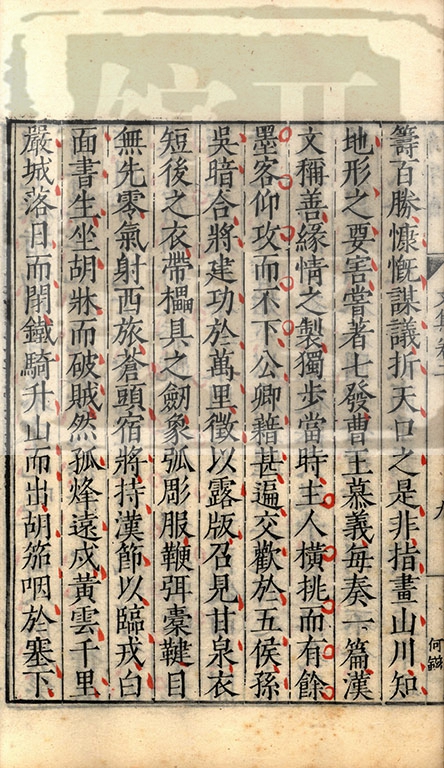 籌百勝慷慨謀議折天口之是非指畫山川知
地形之要害嘗著七發曹王慕義每奏一篇漢
文稱善緣情之製獨步當時主人橫挑而有餘
墨客仰攻而不下公卿藉甚遍交歡於五侯孫
吳暗合將建功於萬里徵以露版召見甘泉衣
短後之衣帶櫑具之劒象弧彫服鞬弭櫜鞬目
無先零氣射西旅蒼頭宿將持漢節以臨戎白
面書生坐胡牀而破賊然孤烽遠戍黃雲千里
嚴城落日而閉鐵騎升山而出胡笳咽於塞下
九
何鎡